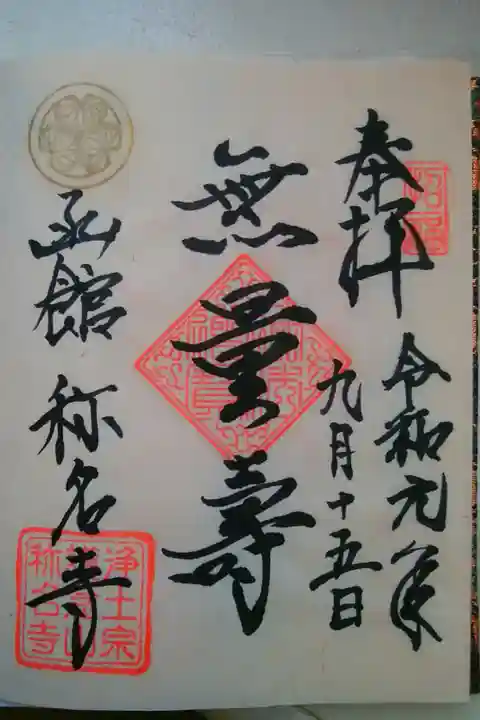 奉拝
令和元年
九月十五日
無量壽
函館 称名寺
浄土宗
称名寺